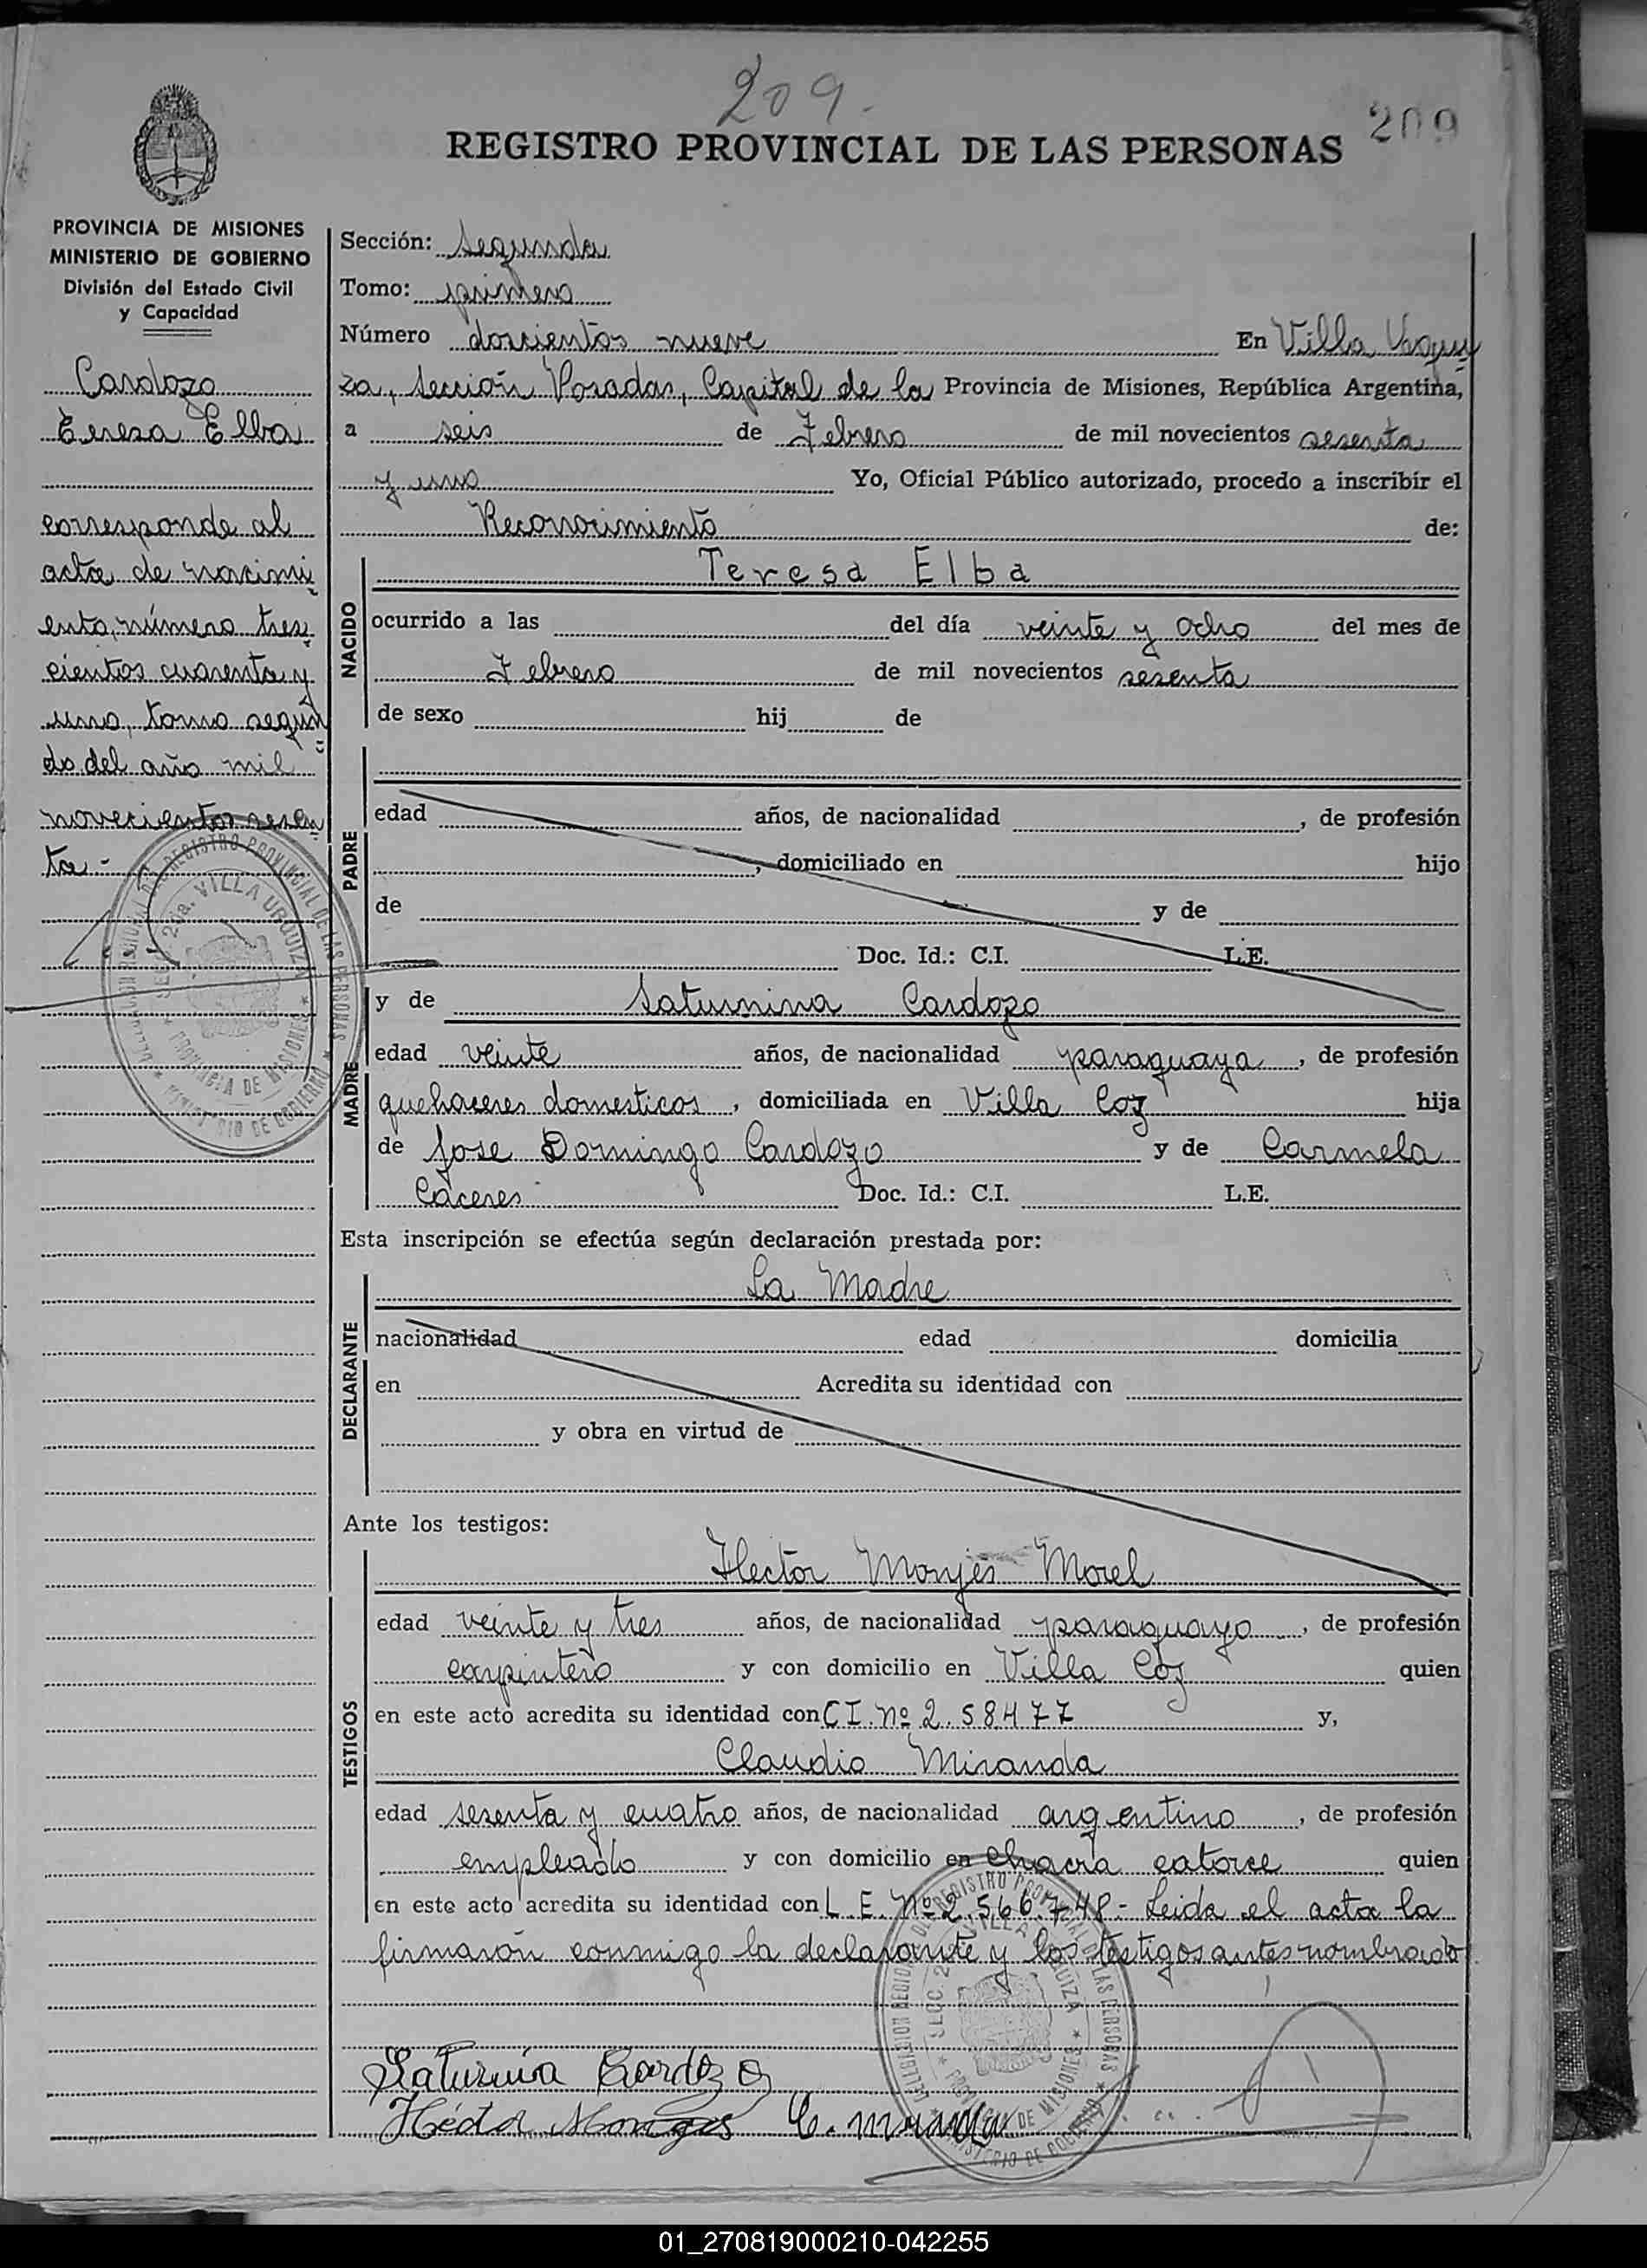 209.
209
REGISTRO PROVINCIAL DE LAS PERSONAS
PROVINCIA DE MISIONES
MINISTERIO DE GOBIERNO
División del Estado Civil
y Capacidad
Cardozo
Teresa Elba
corresponde al
acta de nacimi
ento, número tres
cientos cuarenta y
uno, tomo segun
do del año mil
novecientos sesen
ta -
Sección: Segunda
Tomo: primero
Número doscientos nueve En Villa Urqui
za, Sección Posadas, Capital de la Provincia de Misiones, República Argentina,
a seis de Febrero de mil novecientos sesenta
y uno Yo, Oficial Público autorizado, procedo a inscribir el
Reconocimiento de:
NACIDO
Teresa Elba
ocurrido a las del día veinte y ocho del mes de
Febrero de mil novecientos sesenta
de sexo hij de
PADRE
edad años, de nacionalidad , de profesión
, domiciliado en hijo
de y de
Doc. Id.: C.I. L.E.
MADRE
y de Saturnina Cardozo
edad veinte años, de nacionalidad paraguaya, de profesión
quehaceres domesticos, domiciliada en Villa Coz hija
de Jose Domingo Cardozo y de Carmela
Cáceres Doc. Id.: C.I. L.E.
Esta inscripción se efectúa según declaración prestada por:
DECLARANTE
La Madre
nacionalidad edad domicilia
en Acredita su identidad con
y obra en virtud de
Ante los testigos:
TESTIGOS
Hector Monjes Morel
edad veinte y tres años, de nacionalidad paraguayo, de profesión
carpintero y con domicilio en Villa Coz quien
en este acto acredita su identidad con C I. Nº 2.58477 y,
Claudio Miranda
edad sesenta y cuatro años, de nacionalidad argentino, de profesión
empleado y con domicilio en chacra catorce quien
en este acto acredita su identidad con L.E. Nº 2.566.748.- Leida el acta la
firmaron conmigo la declarante y los testigos antes nombrado
Saturnina Cardozo
Héctor Monges C. Miranda
DELEGACION REGIONAL DEL REGISTRO PROVINCIAL DE LAS PERSONAS
SECC. 2da. VILLA URQUIZA
PROVINCIA DE MISIONES
MINISTERIO DE GOBIERNO
01_270819000210-042255